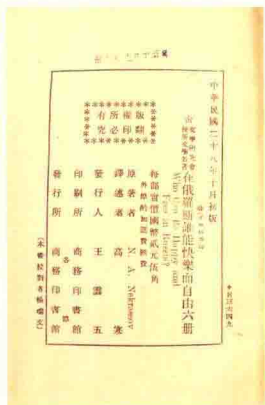 中華民國二十八年十月初版
在俄羅斯誰能快樂而自由六册
Who Can Be Happy and
Free in Russia?
每部實價國幣貳元伍角
外埠酌加運費匯費
原著者 N. A. Nekrassov
譯述者 高寒
發行人 王雲五
印刷所 商務印書館
發行所 各埠 商務印書館
版權所有
翻印必究
(本書校對者楊瑞文)